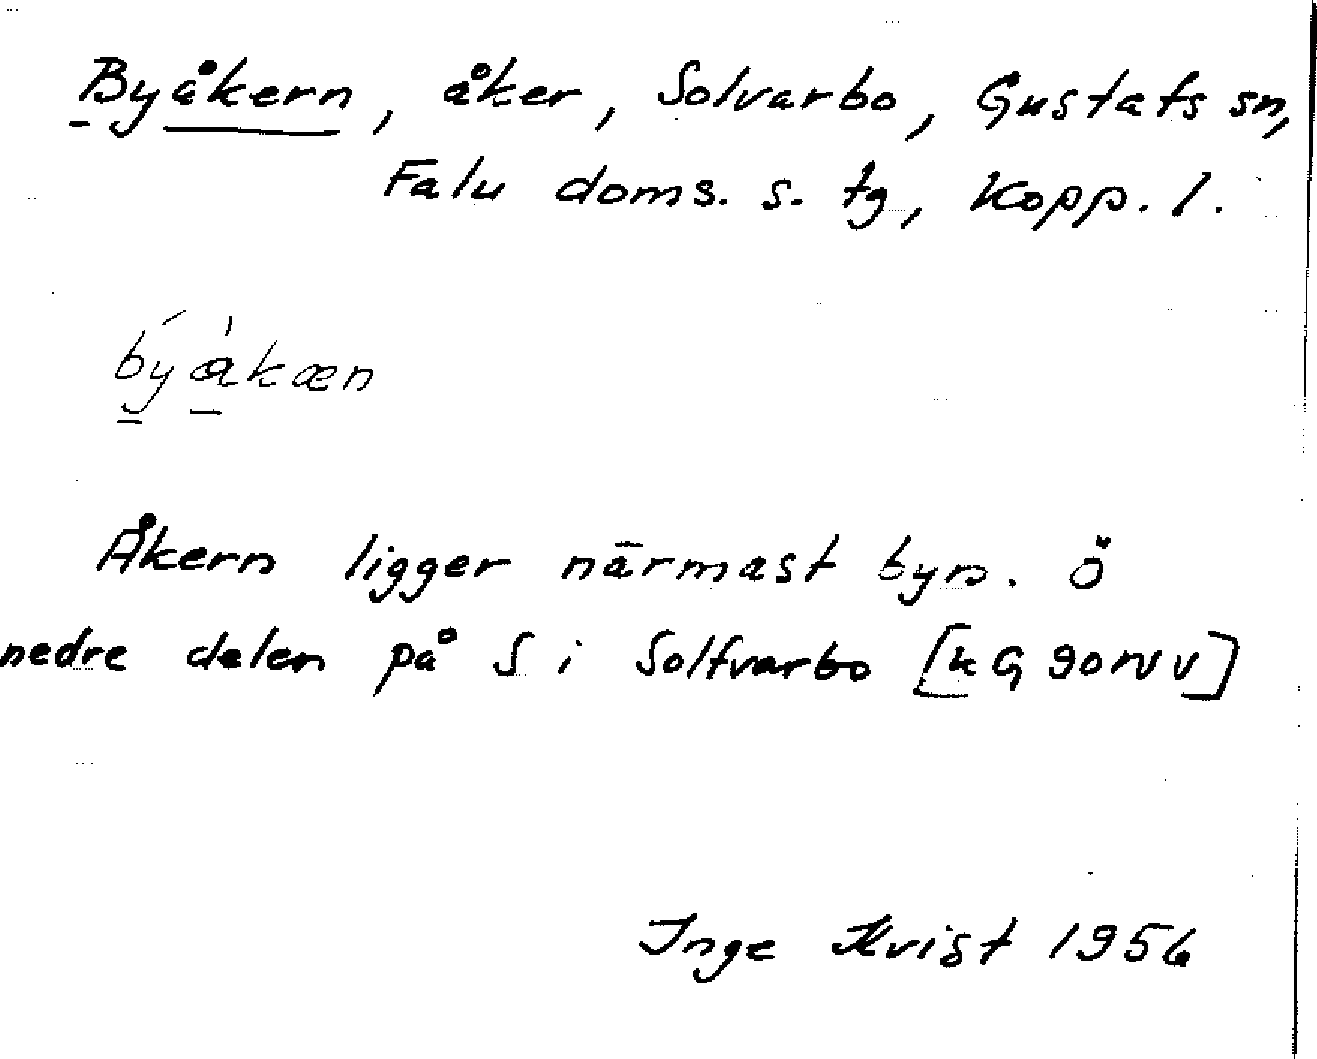 Byåkern, åker, Solvarbo, Gustafs sn,
Falu doms. s. tg, Kopp. l.
byåkæn
Åkern ligger närmast byn. Ö
nedre delen på S i Solfvarbo [kG 90NV V]
Inge Kvist 1956